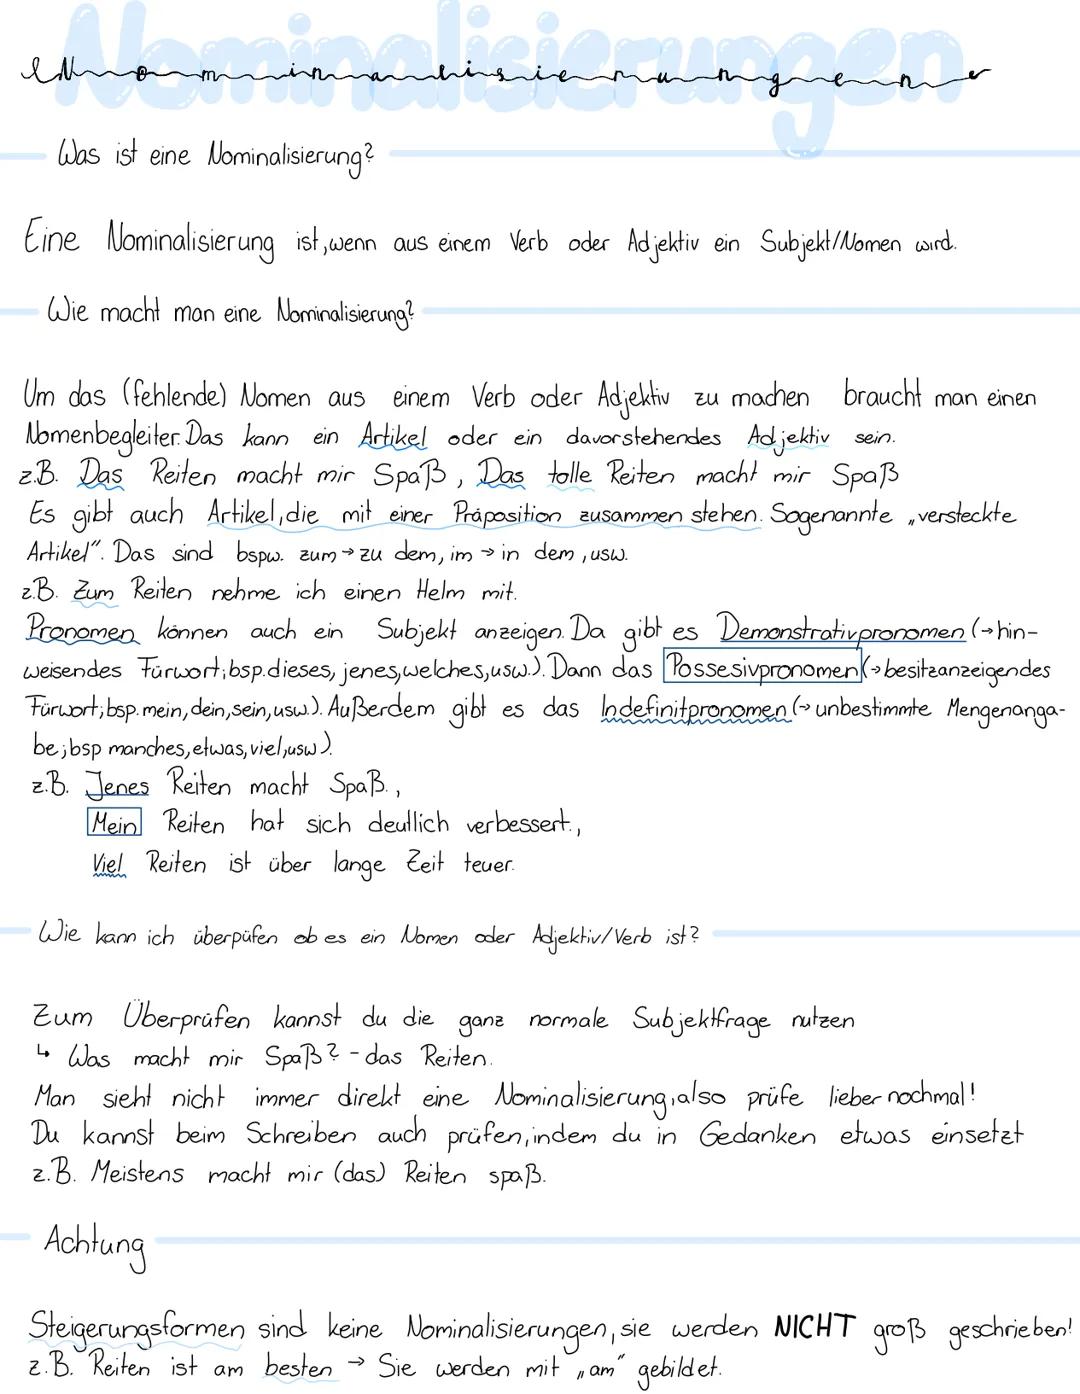 Nominalisierungen
Nominalisierungen
Was ist eine Nominalisierung?
Eine Nominalisierung ist, wenn aus einem Verb oder Adjektiv ein Subjekt/Nomen wird.
Wie macht man eine Nominalisierung?
Um das (fehlende) Nomen aus einem Verb oder Adjektiv zu machen braucht man einen
Nomenbegleiter. Das kann ein Artikel oder ein davorstehendes Adjektiv sein.
z.B. Das Reiten macht mir Spaß, Das tolle Reiten macht mir Spaß
Es gibt auch Artikel, die mit einer Präposition zusammen stehen. Sogenannte „versteckte
Artikel". Das sind bspw. zum → zu dem, im → in dem, usw.
z.B. Zum Reiten nehme ich einen Helm mit.
Pronomen können auch ein Subjekt anzeigen. Da gibt es Demonstrativpronomen (→ hin-
weisendes Fürwort; bsp. dieses, jenes, welches, usw.). Dann das Possesivpronomen (→ besitzanzeigendes
Fürwort; bsp. mein, dein, sein, usw.). Außerdem gibt es das Indefinitpronomen (→ unbestimmte Mengenanga-
be; bsp manches, etwas, viel, usw).
z.B. Jenes Reiten macht Spaß.,
Mein Reiten hat sich deutlich verbessert.,
Viel Reiten ist über lange Zeit teuer.
Wie kann ich überpüfen ob es ein Nomen oder Adjektiv/Verb ist?
Zum Überprüfen kannst du die ganz normale Subjektfrage nutzen
↳ Was macht mir Spaß? - das Reiten.
Man sieht nicht immer direkt eine Nominalisierung, also prüfe lieber nochmal!
Du kannst beim Schreiben auch prüfen, indem du in Gedanken etwas einsetzt
z.B. Meistens macht mir (das) Reiten spaß.
Achtung
Steigerungsformen sind keine Nominalisierungen, sie werden NICHT groß geschrieben!
z.B. Reiten ist am besten → Sie werden mit „am" gebildet.